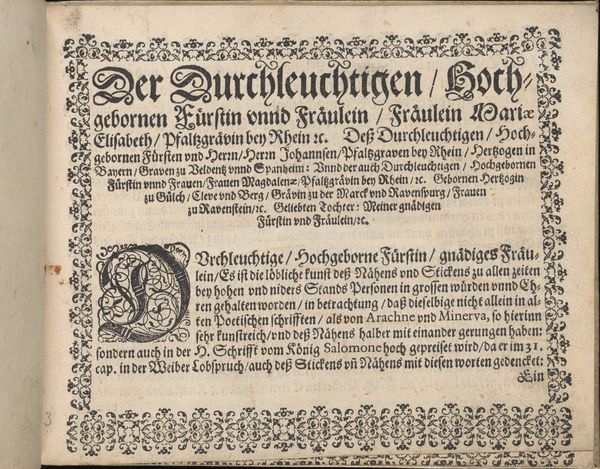 Der Durchleuchtigen / Hoch-
gebornen Fürstin vnnd Fräulein / Fräulein Mariæ
Elisabeth / Pfaltzgrävin bey Rhein ꝛc. Deß Durchleuchtigen / Hoch-
gebornen Fürsten vnd Herrn / Herrn Johannsen / Pfaltzgraven bey Rhein / Hertzogen in
Bayern / Graven zu Veldentz vnnd Spanheim: Vnnd der auch Durchleuchtigen / Hochgebornen
Fürstin vnnd Frauen / Frauen Magdalenæ / Pfaltzgrävin bey Rhein / ꝛc. Gebornen Hertzogin
zu Gülch / Cleve vnd Berg / Grävin zu der Marck vnd Ravenspurg / Frauen
zu Ravenstein / ꝛc. Geliebten Tochter: Meiner gnädigen
Fürstin vnd Fräulein / ꝛc.
DVrchleuchtige / Hochgeborne Fürstin / gnädiges Fräu-
lein / Es ist die löbliche kunst deß Nähens vnd Stickens zu allen zeiten
bey hohen vnd niders Stands Personen in grossen würden vnnd Eh-
ren gehalten worden / in betrachtung / daß dieselbige nicht allein in al-
ten Poetischen schrifften / als von Arachne vnd Minerva, so hierinn
sehr kunstreich / vnd deß Nähens halber mit einander gerungen haben:
sondern auch in der H. Schrifft vom König Salomone hoch gepreiset wird / da er im 31.
cap. in der Weiber Lobspruch / auch deß Stickens vñ Nähens mit diesen worten gedencket:
Ein
3